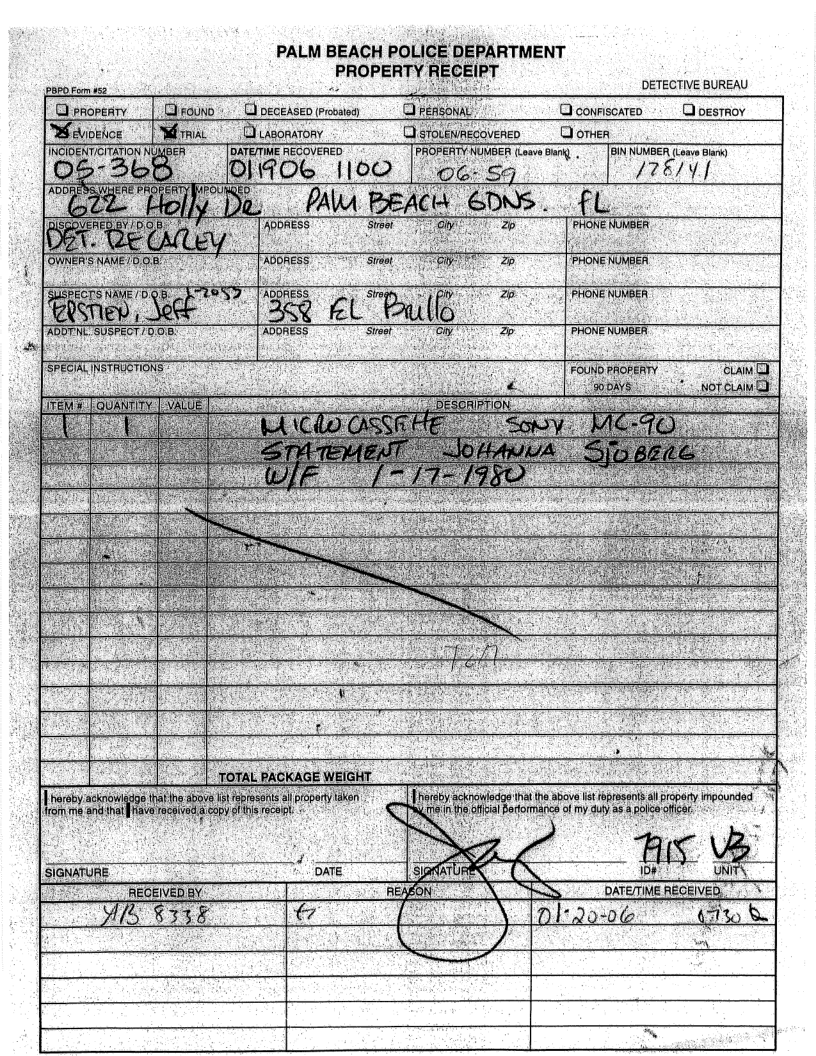 PALM BEACH POLICE DEPARTMENT
PROPERTY RECEIPT
PBPD Form #52 DETECTIVE BUREAU
PROPERTY FOUND DECEASED (Probated) PERSONAL CONFISCATED DESTROY
EVIDENCE TRIAL LABORATORY STOLEN/RECOVERED OTHER
INCIDENT/CITATION NUMBER DATE/TIME RECOVERED PROPERTY NUMBER (Leave Blank) BIN NUMBER (Leave Blank)
05-368 011906 1100 06-59 178141
ADDRESS WHERE PROPERTY IMPOUNDED
622 Holly DR PALM BEACH GDNS. FL
DISCOVERED BY / D.O.B. ADDRESS Street City Zip PHONE NUMBER
DET. RECAREY
OWNER'S NAME / D.O.B. ADDRESS Street City Zip PHONE NUMBER
SUSPECT'S NAME / D.O.B. ADDRESS Street City Zip PHONE NUMBER
EPSTIEN, Jeff 358 EL Brillo
ADDT'NL. SUSPECT / D.O.B. ADDRESS Street City Zip PHONE NUMBER
SPECIAL INSTRUCTIONS FOUND PROPERTY CLAIM
90 DAYS NOT CLAIM
ITEM # QUANTITY VALUE DESCRIPTION
1 1 MICROCASSETTE SONY MC-90
STATEMENT JOHANNA SJOBERG
W/F 1-17-1980
TOTAL PACKAGE WEIGHT
I hereby acknowledge that the above list represents all property taken I hereby acknowledge that the above list represents all property impounded
from me and that I have received a copy of this receipt. by me in the official performance of my duty as a police officer.
7915 VB
SIGNATURE DATE SIGNATURE ID# UNIT
RECEIVED BY REASON DATE/TIME RECEIVED
8338 01-20-06 0730